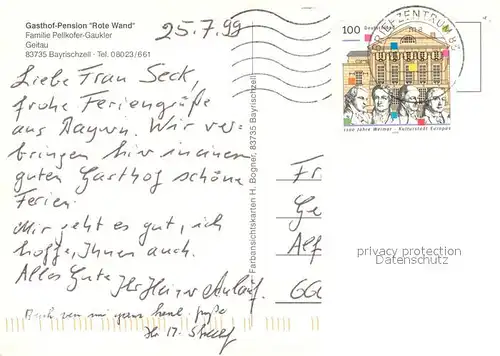 Gasthof-Pension "Rote Wand"
Familie Pellkofer-Gaukler
Geitau
83735 Bayrischzell - Tel. 08023/661
25.7.99
Liebe Frau Seck,
frohe Feriengrüße
aus Bayern. Wir ver-
bringen hier in einem
guten Gasthof schöne
Ferien.
Mir geht es gut, ich
hoffe, Ihnen auch.
Alles Gute Ihr
Auch von mir ganz herzl. Grüße
Farbansichtskarten H. Bogner, 83735 Bayrischzell
100 Deutschland
1100 Jahre Weimar - Kulturstadt Europas
BRIEFZENTRUM 83
Fr
Ge
Alf
666
privacy protection
Datenschutz